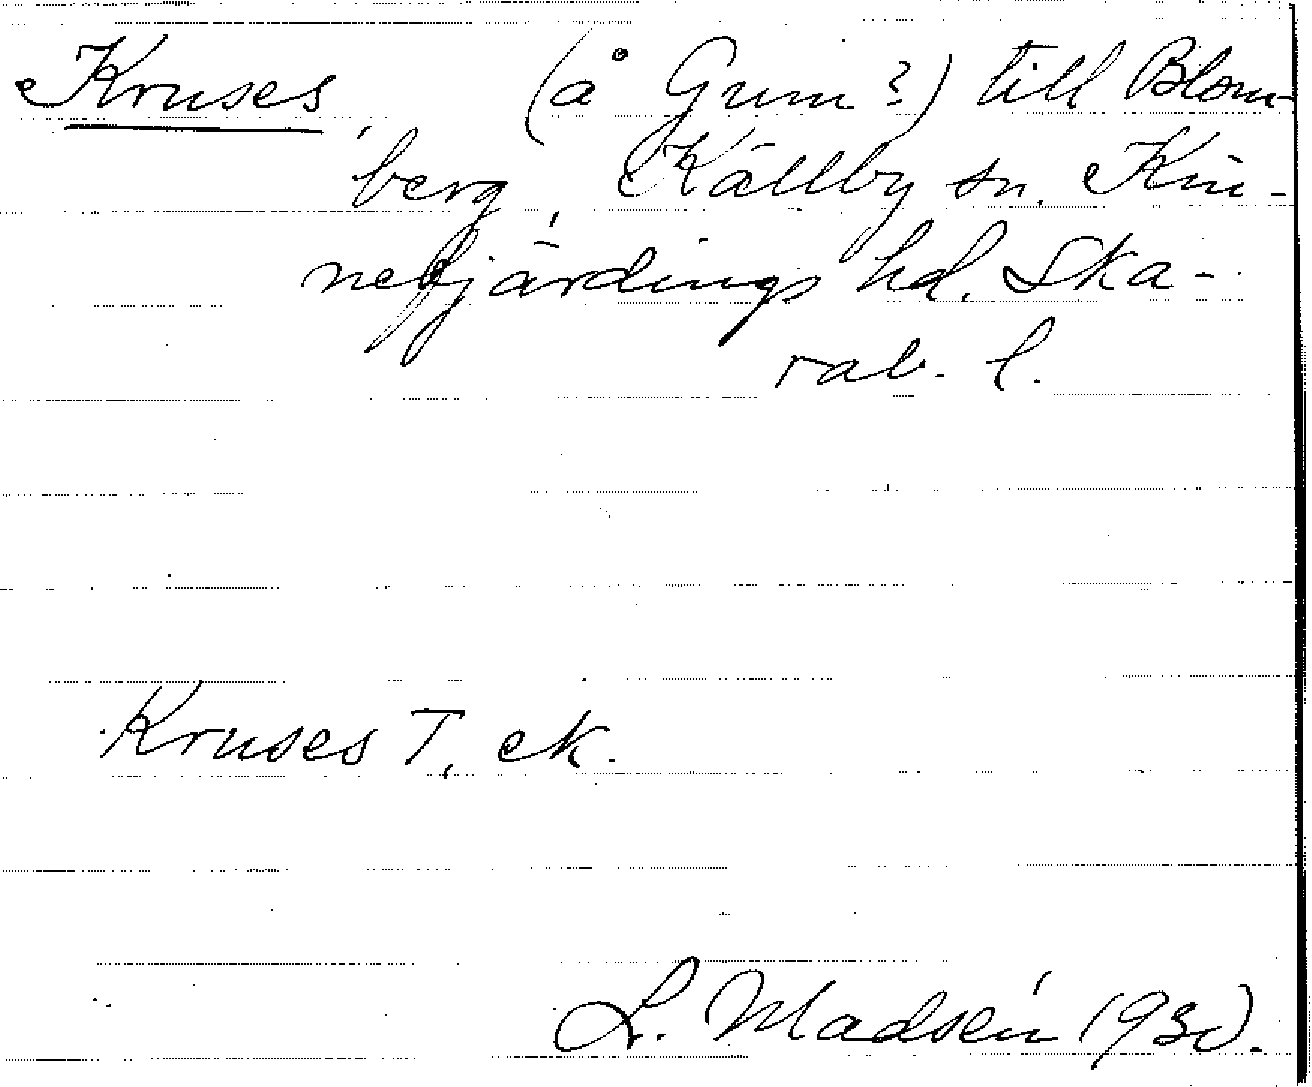 Kruses (å Grim?) till Blom-
berg, Källby sn, Kin-
nefjärdings hd. Ska-
rab. l.
Kruses T, ek.
L. Madsén 1930.